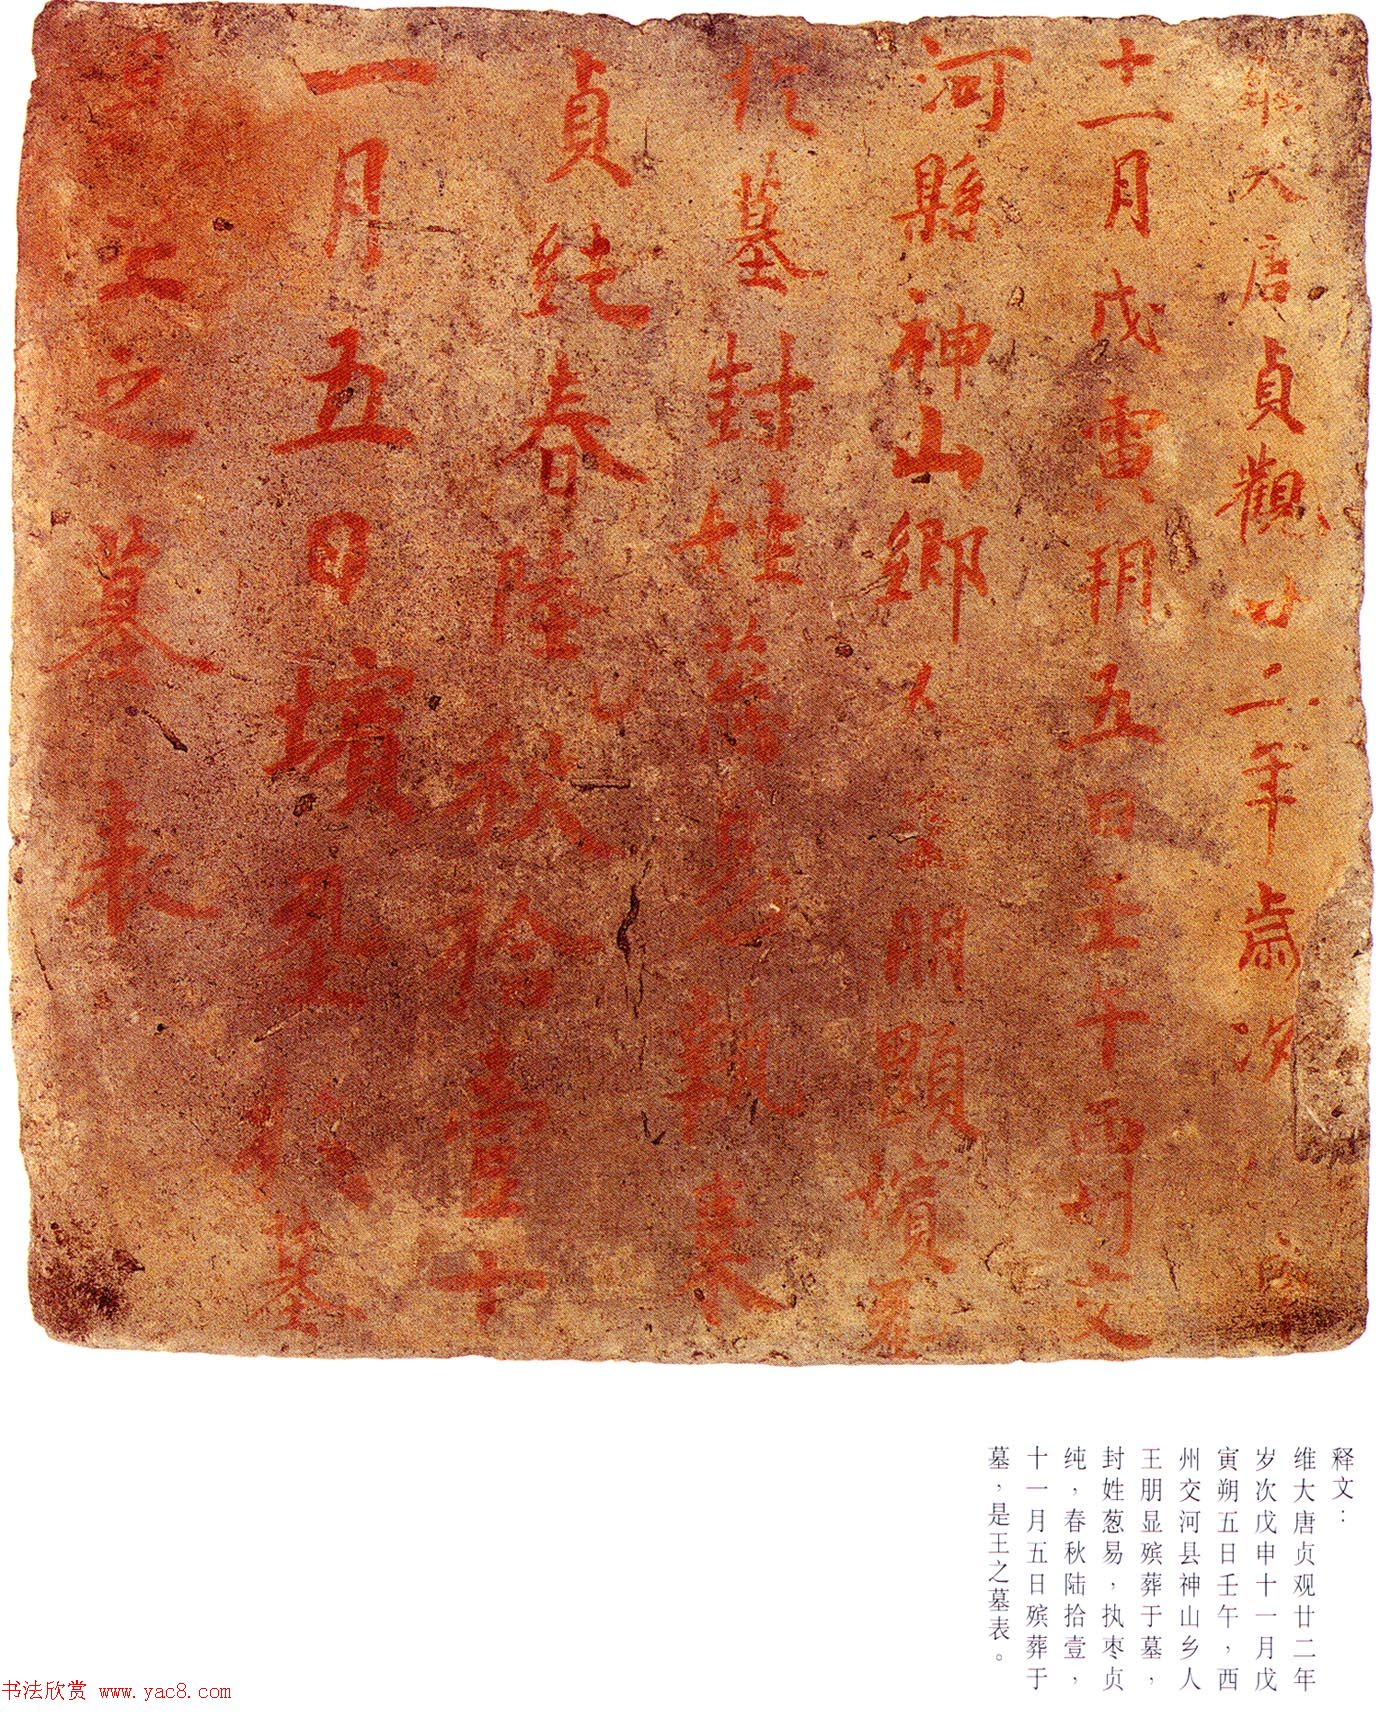 維大唐貞觀廿二年歲次
十一月戊寅朔五日壬午西州交
河縣神山鄉人王朋顯殯葬
於墓封姓葱易執棗
貞純春秋陸拾壹十
一月五日殯葬於墓
是王之墓表
释文：
维大唐贞观廿二年
岁次戊申十一月戊
寅朔五日壬午，西
州交河县神山乡人
王朋显殡葬于墓，
封姓葱易，执枣贞
纯，春秋陆拾壹，
十一月五日殡葬于
墓，是王之墓表。
书法欣赏 www.yac8.com